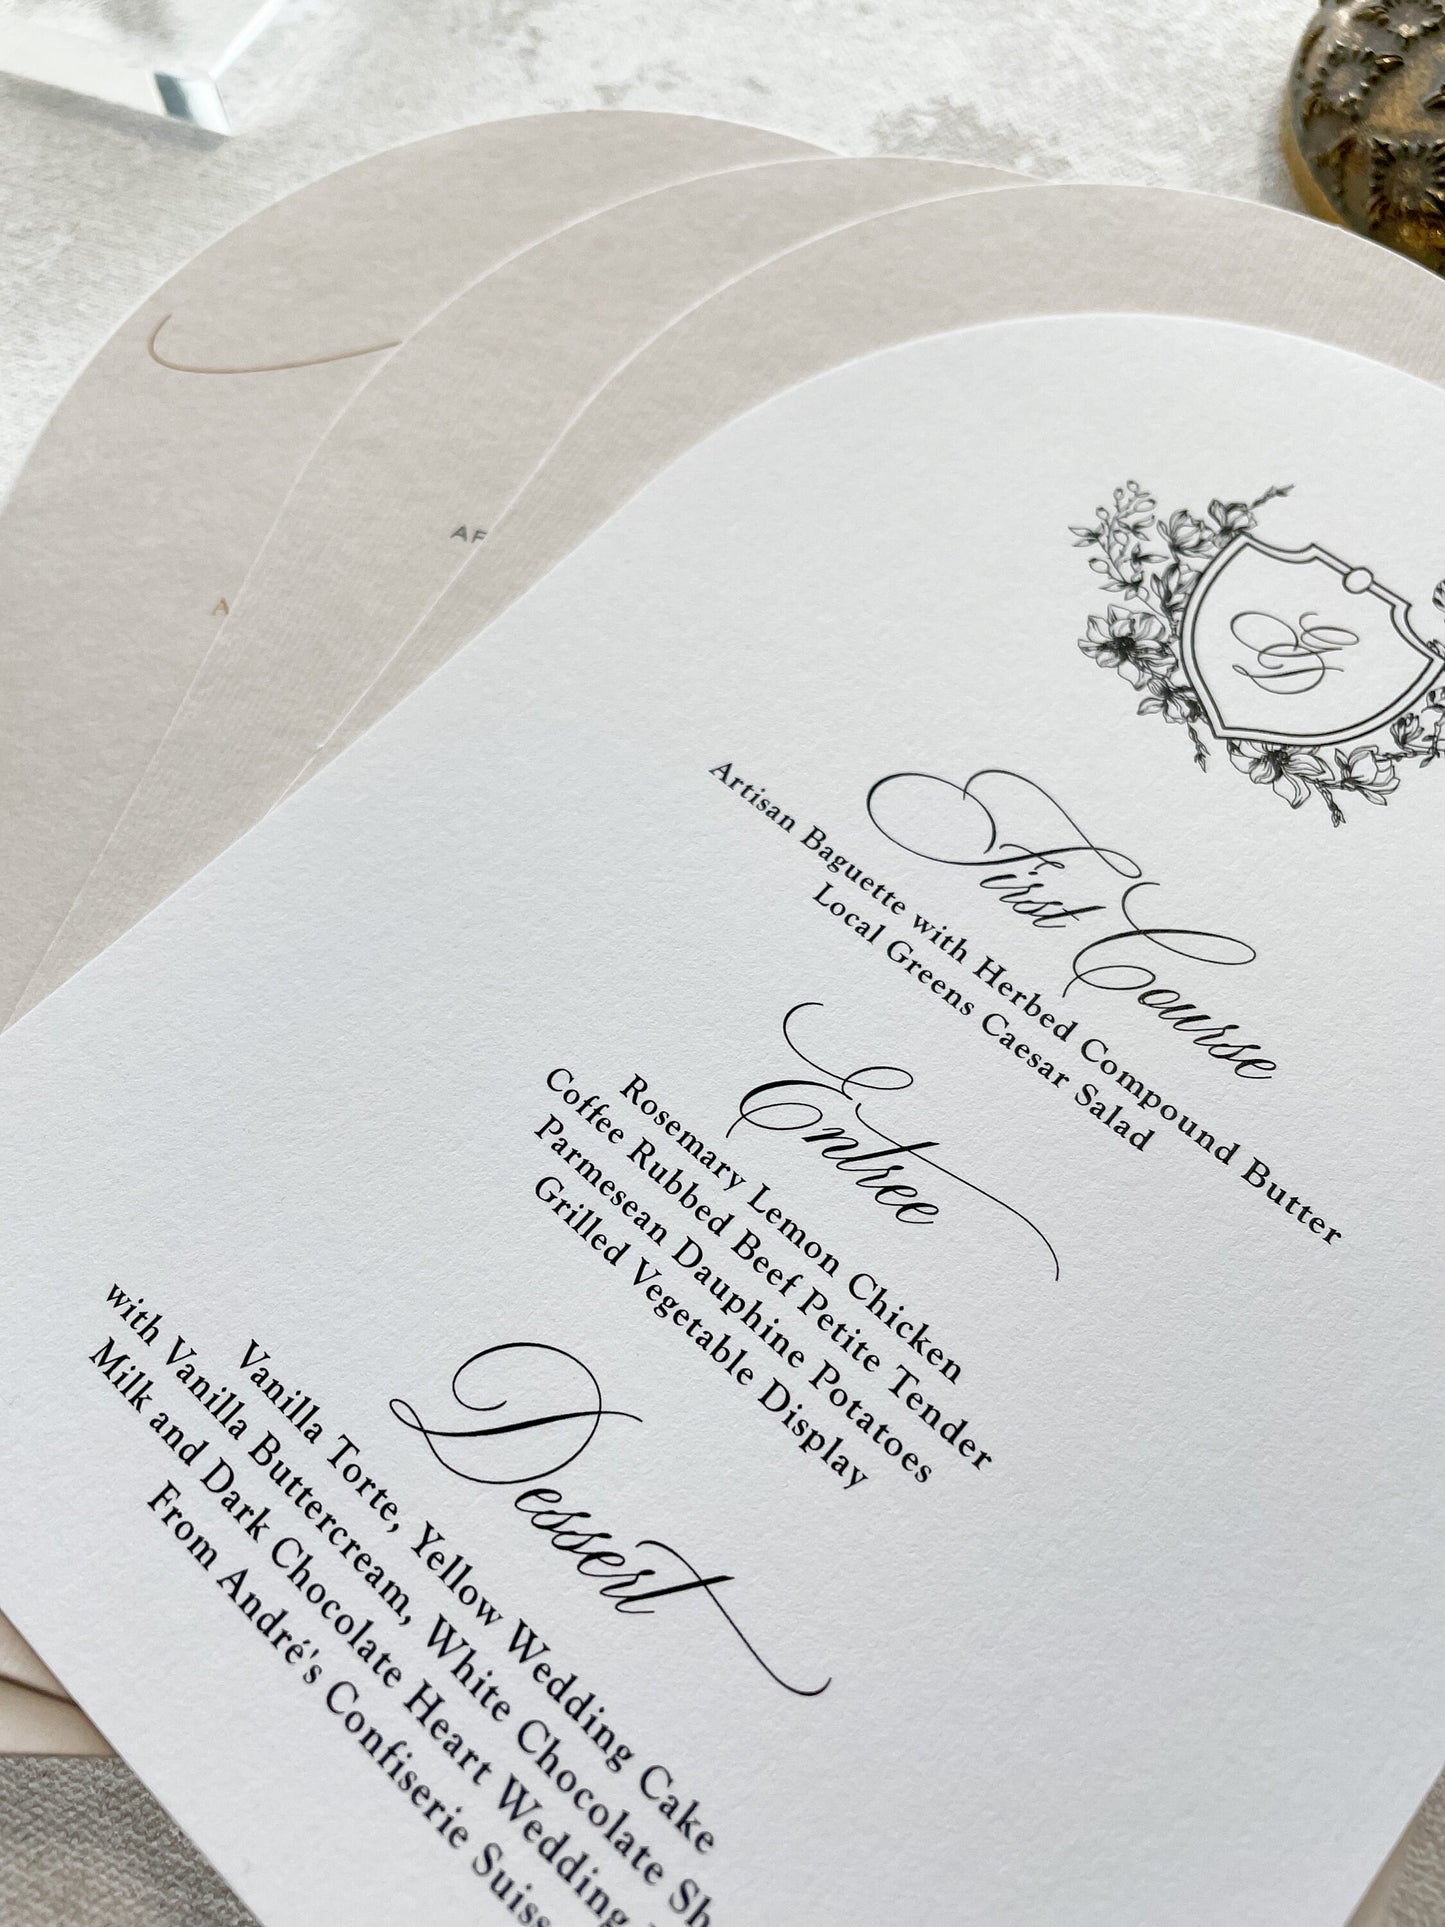 A
AF
First Course
Artisan Baguette with Herbed Compound Butter
Local Greens Caesar Salad
Entree
Rosemary Lemon Chicken
Coffee Rubbed Beef Petite Tender
Parmesean Dauphine Potatoes
Grilled Vegetable Display
Dessert
Vanilla Torte, Yellow Wedding Cake
with Vanilla Buttercream, White Chocolate Sh
Milk and Dark Chocolate Heart Wedding
From André's Confiserie Suiss